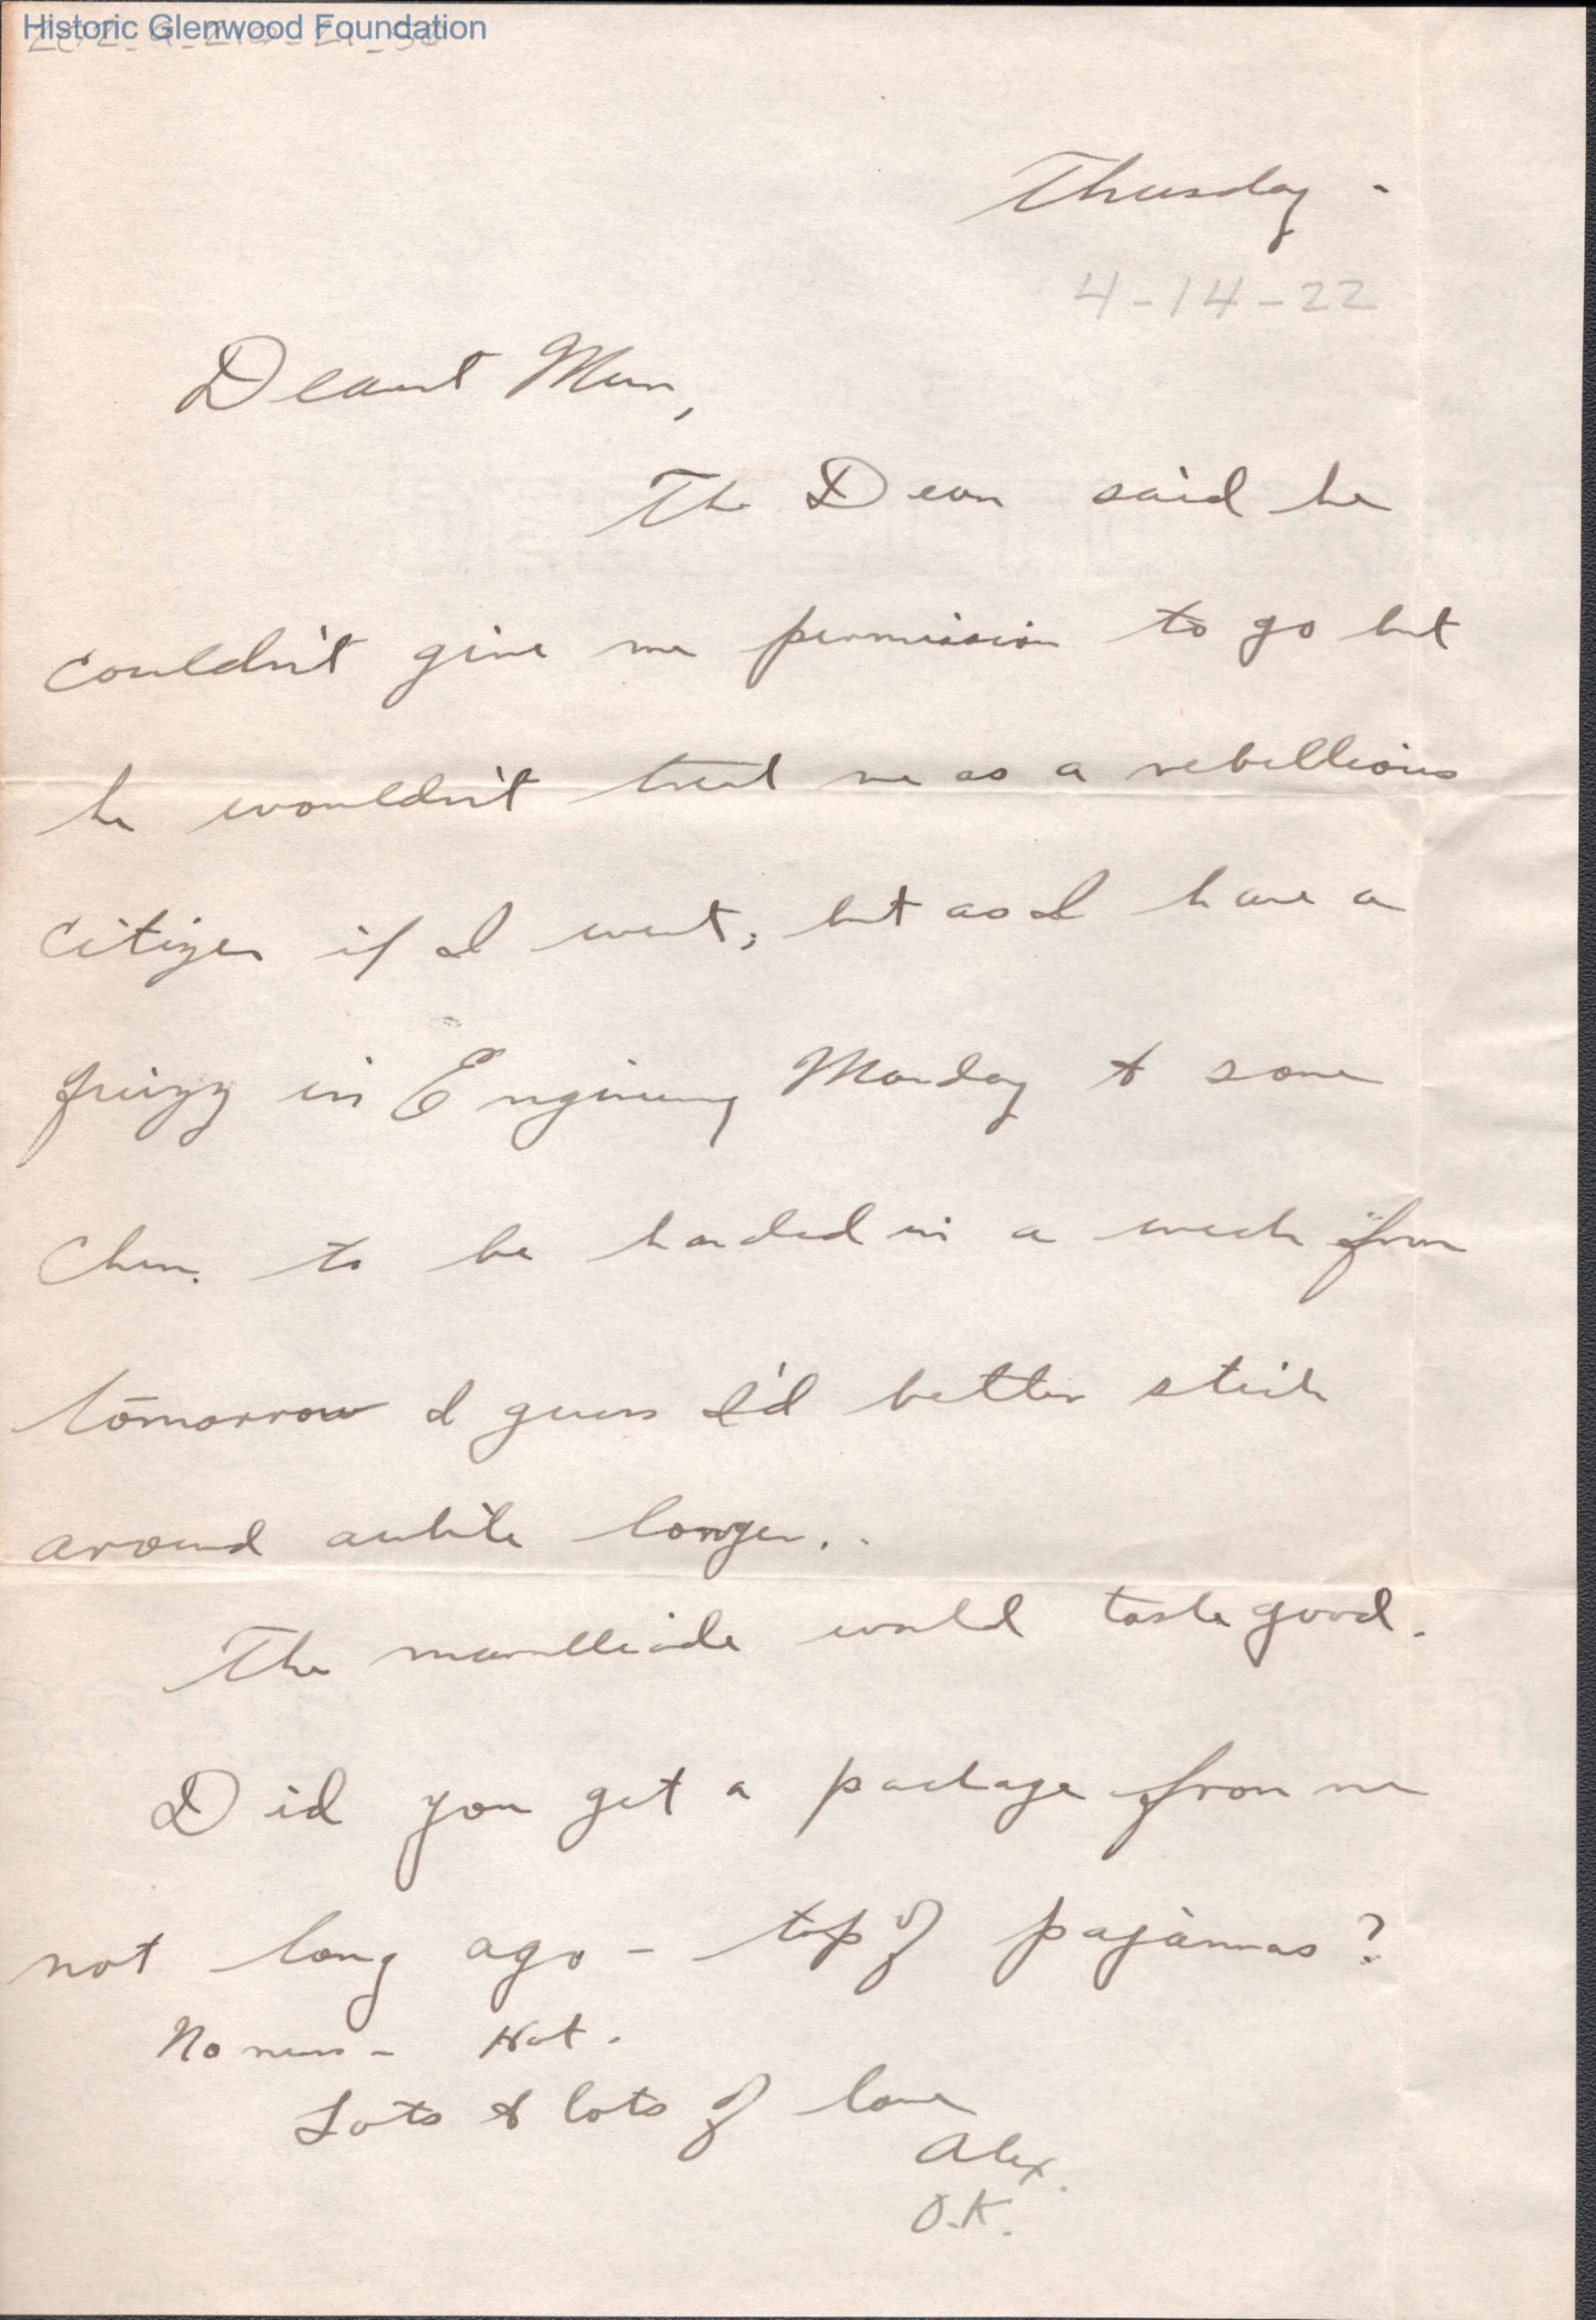 Historic Glenwood Foundation
Thursday -
4-14-22
Dearest Mum,
The Dean said he
couldn't give me permission to go but
he wouldn't treat me as a rebellious
citizen if I went; but as I have a
quizz in Engineering Monday & some
Chem. to be handed in a week from
tomorrow I guess I'd better stick
around awhile longer..
The marmellade would taste good.
Did you get a package from me
not long ago - top of pajamas?
No news - Hot.
Lots & lots of love
Alex.
O.K.